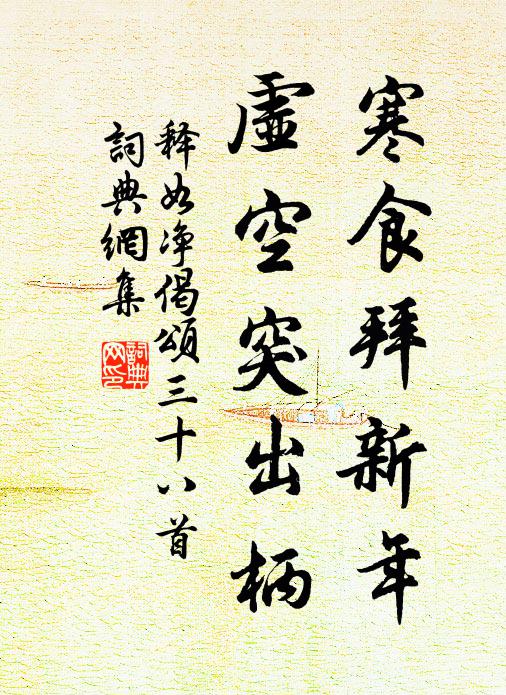 寒食拜新年
虛空突出柄
释如净偈頌三十八首
詞典網集
詞典網印